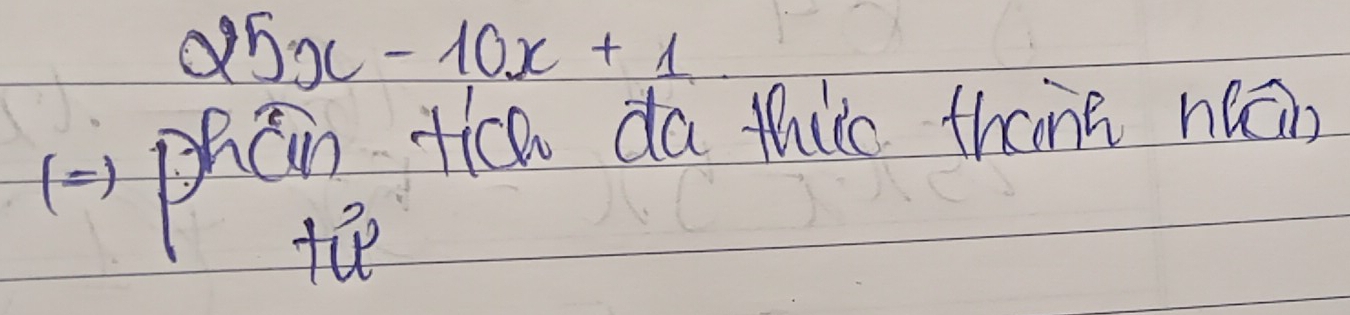 25x - 10x + 1
(=) phân tích đa thức thành nhân
tử